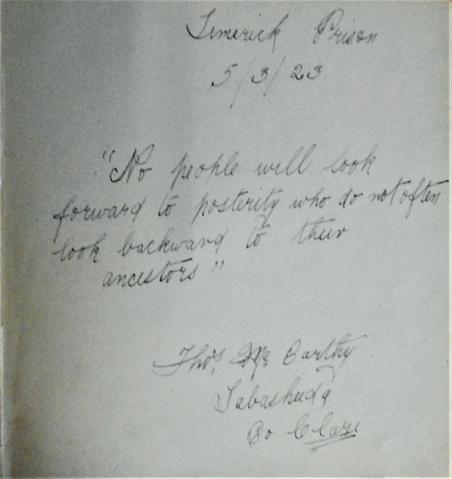 Limerick Prison
5/3/23
"No people will look
forward to posterity who do not often
look backward to their
ancestors"
Thos. Mc Carthy
Labasheeda
Co Clare